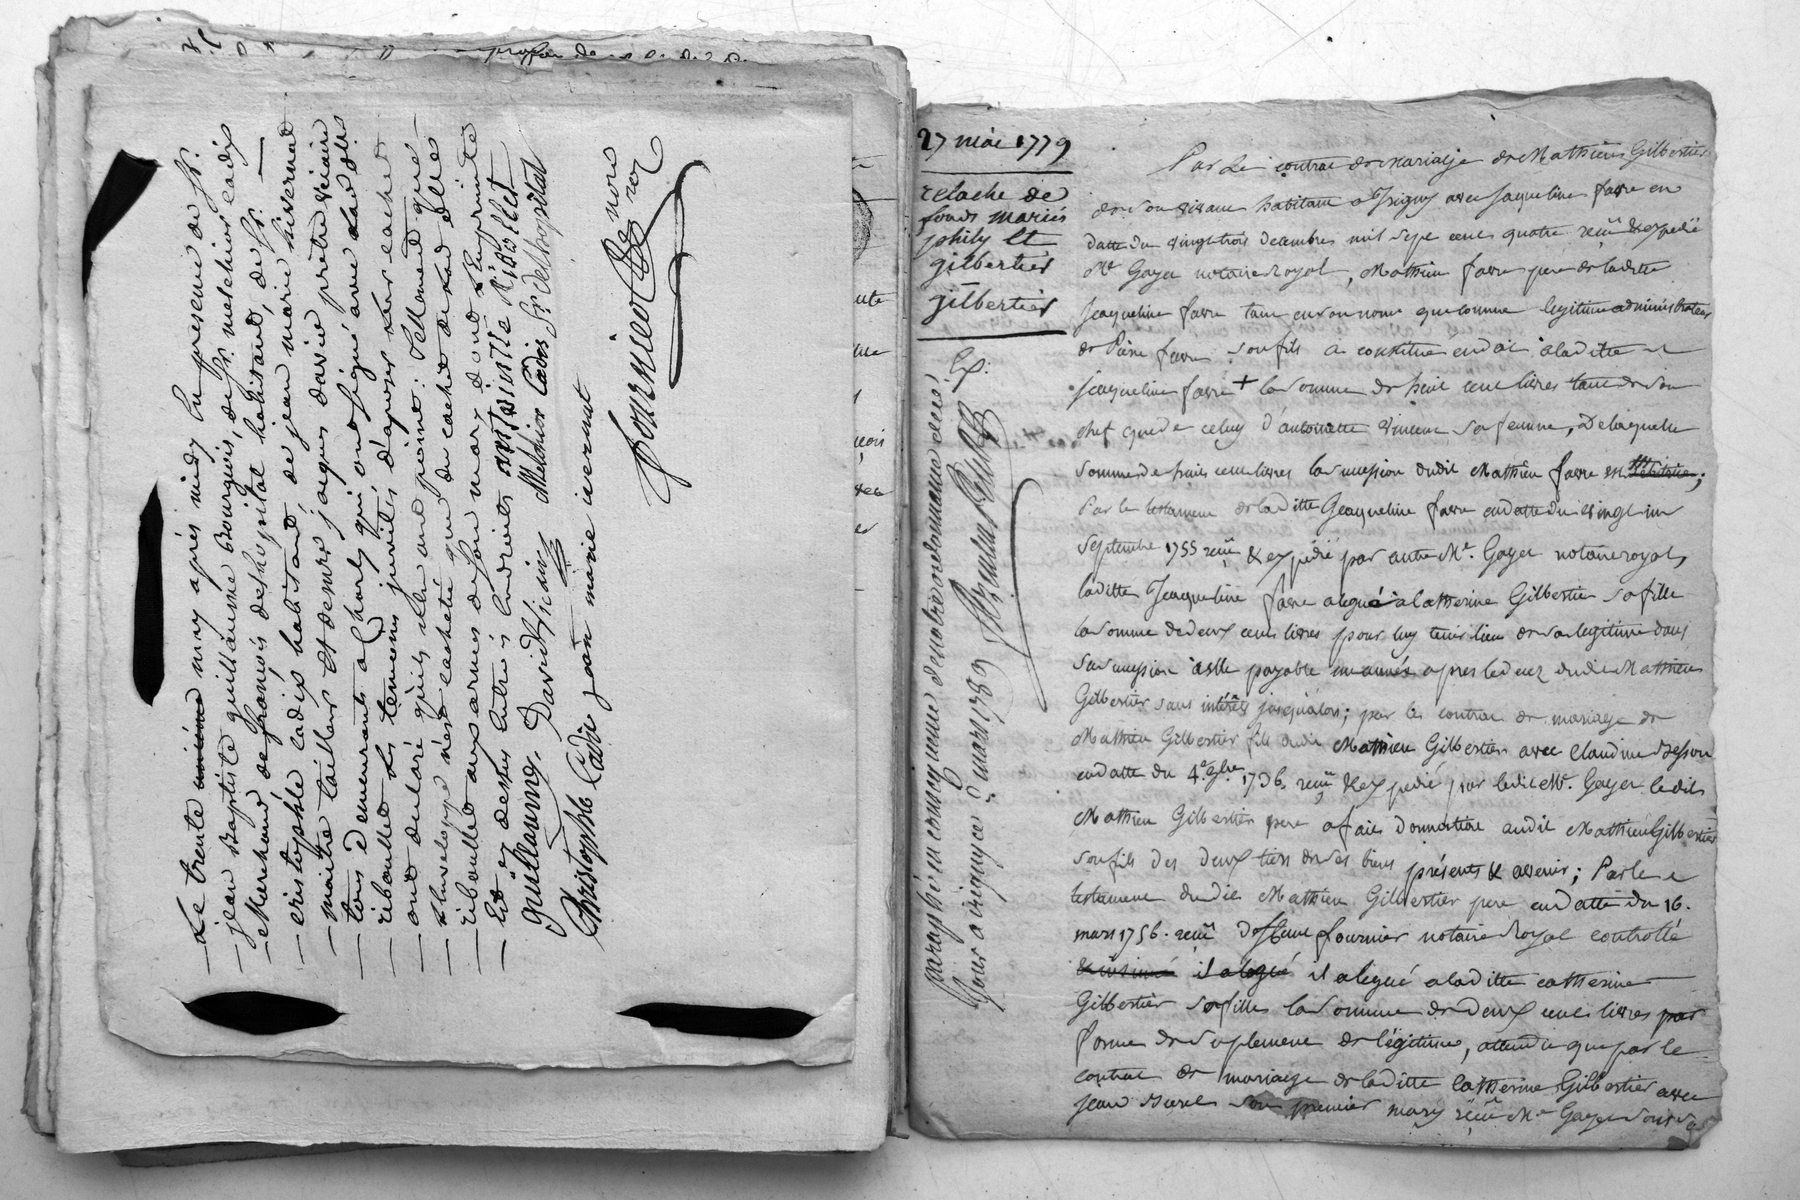 Le trente may après midy en presence de Sr.
jean Baptiste guillaume Bourgeois, de Sr. melchior cadix
Marchand, de françois deshopital habitant, de Sr.
cristophle cadix habitant, de jean marie hivernat
maitre tailleur et de mre jaques david prêtre vicaire
tous demeurants a charly qui ont signé avec
riboullet les temoins invités d'aposer leur cachet
ont declaré qu'ils n'en ont point : tellement que
l'enveloppe n'est cachetée que du cachet de lad. elles
riboullet aux armes de son mary dont l'empreinte
est cy dessus entre endroits antoinette Riboullet
guillaume, David vicaire Melchior Cadix Fr. deshopital
Christophle Cadix jean marie ivernat
fournier
27 mai 1779
relache de
fonds mariés
phily et
gilbertier
gilbertier
Ex.
paraphé en conséquence de notre ordonnance de ce
jour a irigny ce 2 mars 1789
Par le contrat de Mariage de Mathieu Gilbertier
de son vivant habitant a Irigny avec Jacqueline favre en
datte du vingt trois decembre mil sept cent quatre reçu & expedié
Me Gayer notaire Royal, Mathieu favre pere de laditte
Jeacqueline favre tant en son nom que comme legitime administrateur
de Piere favre son fils a constitué en dot a laditte
Jeacqueline favre + la somme de huit cent livres tant de son
chef que de celuy d'antoinette vincent sa femme, De laquelle
somme de huit cent livres la succession dudit Mathieu favre est ;
Par le testament de laditte Jeacqueline favre en datte du vingt un
septembre 1755 reçu & expédié par autre Me. Gayer notaire royal,
laditte Jeacqueline favre a legué a Catherine Gilbertier sa fille
la somme de deux cent livres pour luy tenir lieu de sa legitime dans
sa succession a elle payable une année apres le decez dudit Mathieu
Gilbertier sans intérêts jusqu'alors; par le contrat de mariage de
Mathieu Gilbertier fils dudit Mathieu Gilbertier avec Claudine Besson
en datte du 4e. 9bre 1736. reçu & expedié par ledit Me. Gayer ledit
Mathieu Gilbertier pere a fait donnation audit Mathieu Gilbertier
son fils des deux tiers de ses biens présents & avenir; Par le
testament dudit Mathieu Gilbertier pere en datte du 16.
mars 1756. reçu fournier notaire Royal controllé
il a legué il a legué a laditte catherine
Gilbertier sa fille la somme de deux cent livres par
forme de suplement de légitime, attendu que par le
contrat de mariage de laditte Catherine Gilbertier avec
jean son premier mary reçu Me Gayer